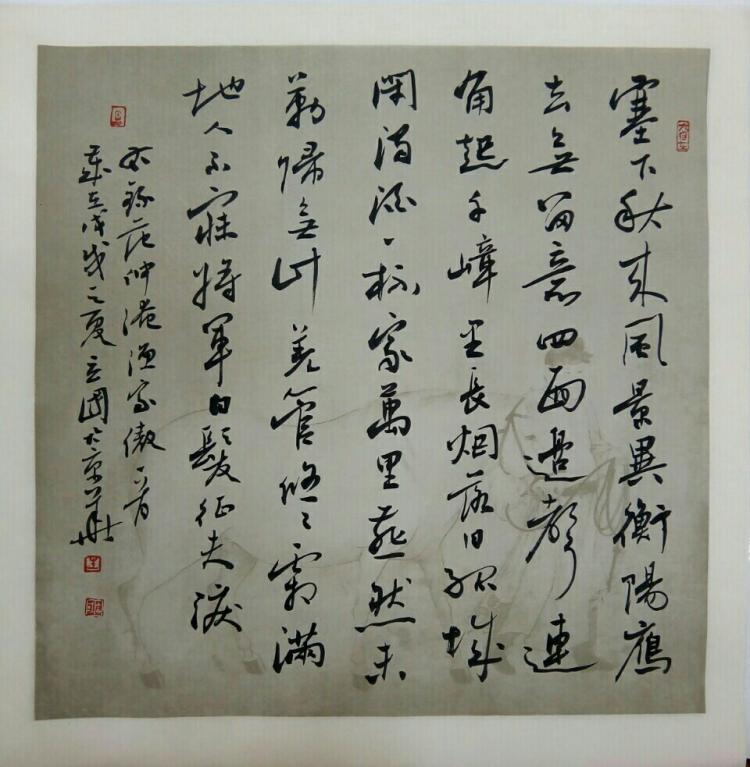 塞下秋来風景異衡陽鴈
去無留意四面邊聲連
角起千嶂里長烟落日孤城
閉濁酒一杯家萬里燕然未
勒歸無計羌管悠々霜滿
地人不寐將軍白髮征夫淚
右録范仲淹漁家傲一首
歲在戊戌之夏立國於京華